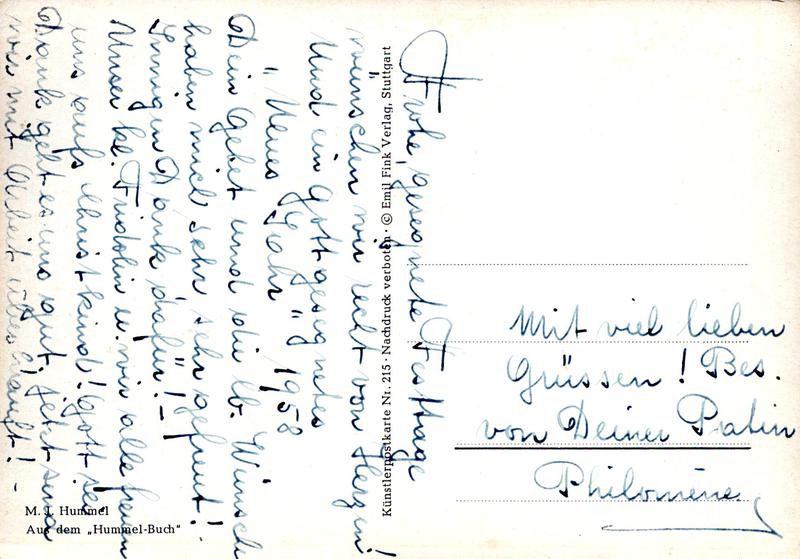 Frohe, gesegnete Festtage
wünschen wir recht von Herzen!
Und ein gottgesegnetes
"Neues Jahr" 1958
Dein Gebet und die lb. Wünsche
haben mich sehr, sehr gefreut!
Innigen Dank dafür! -
Unser kl. Fridolin u. wir alle freuen
uns aufs Christkind! Gott sei
Dank geht es uns gut, jetzt sind
wir mit Arbeit überhäuft! -
Mit viel lieben
Grüssen! Bes.
von Deiner Patin
Philomène
Künstlerpostkarte Nr. 215 · Nachdruck verboten · © Emil Fink Verlag, Stuttgart
M. I. Hummel
Aus dem „Hummel-Buch"